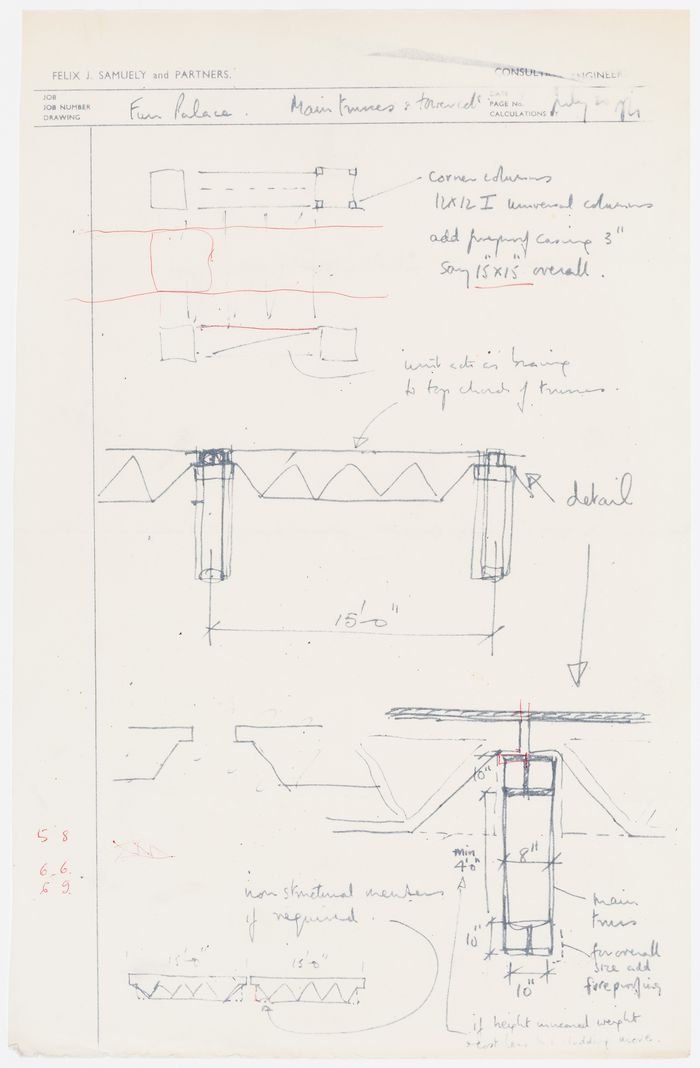 FELIX J. SAMUELY and PARTNERS.
CONSULTING ENGINEER
JOB
JOB NUMBER
DRAWING
Fun Palace.
Main trusses & towers
DATE
PAGE No.
CALCULATIONS BY
July
corner columns
12x12 I universal columns
add fireproof casing 3"
say 15"x15" overall.
unit acts as bracing
to top chord of trusses.
detail
15'-0"
10"
min
4'0"
8"
10"
10"
main
truss
for overall
size add
fireproofing
5 8
6 6.
6 9.
non structural members
if required.
15'-0"
15'-0"
if height increased weight